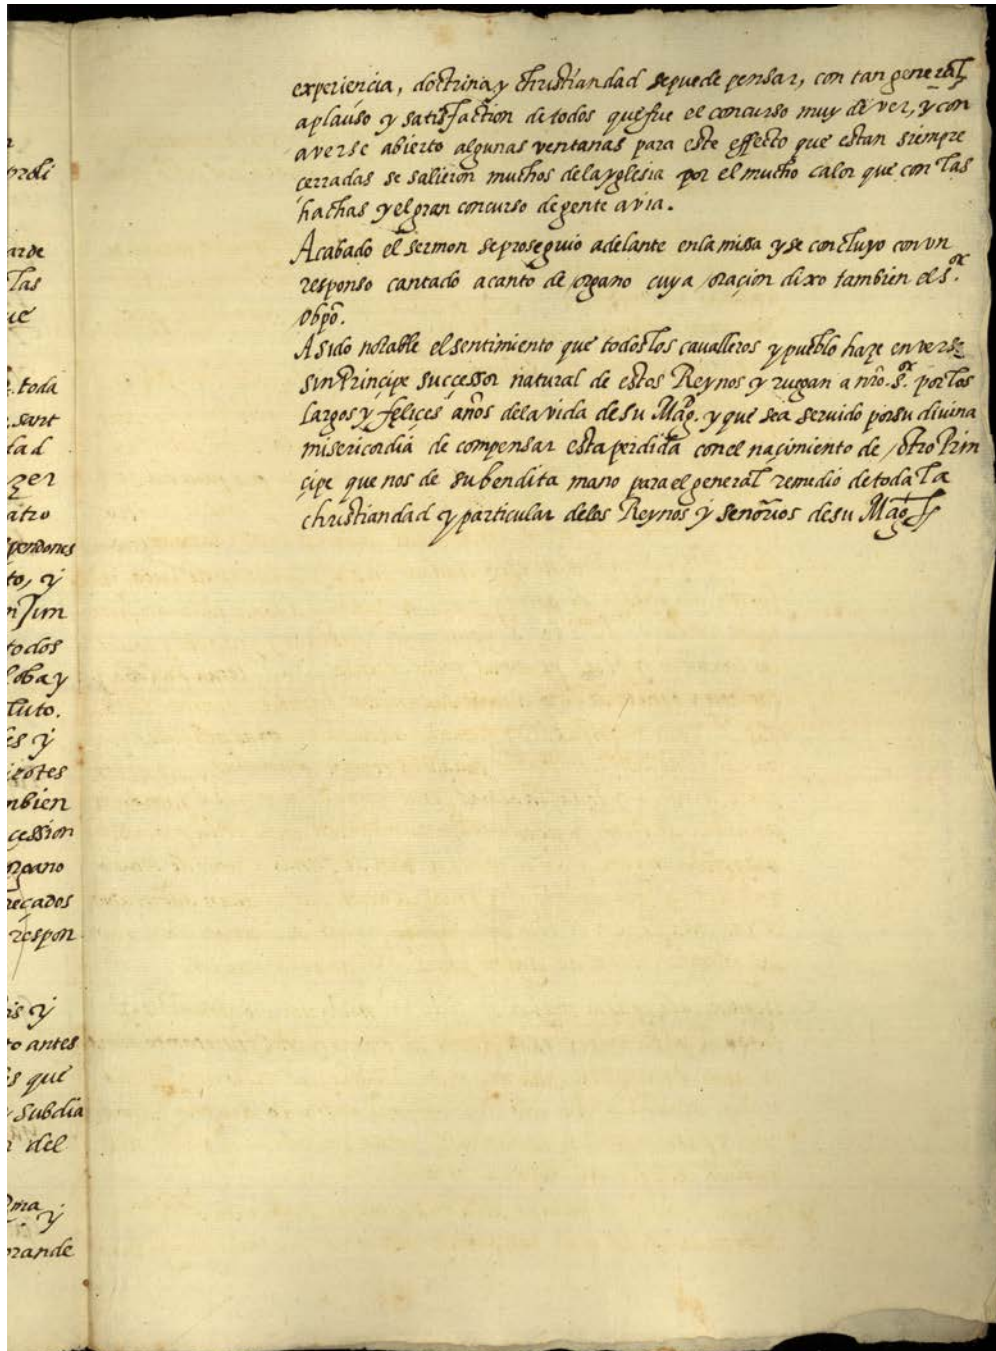 experiencia, doctrina y christiandad sepuede pensar, con tan general
aplauso y satisfaction detodos quefue el concurso muy de ver, y con
averse abierto algunas ventanas para este effecto que estan siempre
çerradas se salieron muchos delayglesia por el mucho calor que con las
hachas y el gran concurso degente avia.
Acabado el sermon seproseguio adelante enlamissa y se concluyo con vn
responso cantado acanto de organo cuya oraçion dixo tambien el s.or
obpo.
A sido notable elsentimiento que todoslos cavalleros y pueblo haze enverse
sinPrincipe successor natural de estos Reynos y ruegan a nro. s.or porlos
largos y feliçes años delavida desu Mag.d y que sea servido porsu divina
misericordia de compensar esta perdida conel naçimiento de otro Prin
çipe que nos de subendita mano para el general remedio detoda la
christiandad y particular delos Reynos y señorios desu Mag.d
proli
arde
las
ue
toda
sant
dad
zer
atro
pendones
to, y
todos
loba y
luto.
es y
mbien
cession
organo
respon
is y
to antes
s que
subdia
del
y
grande